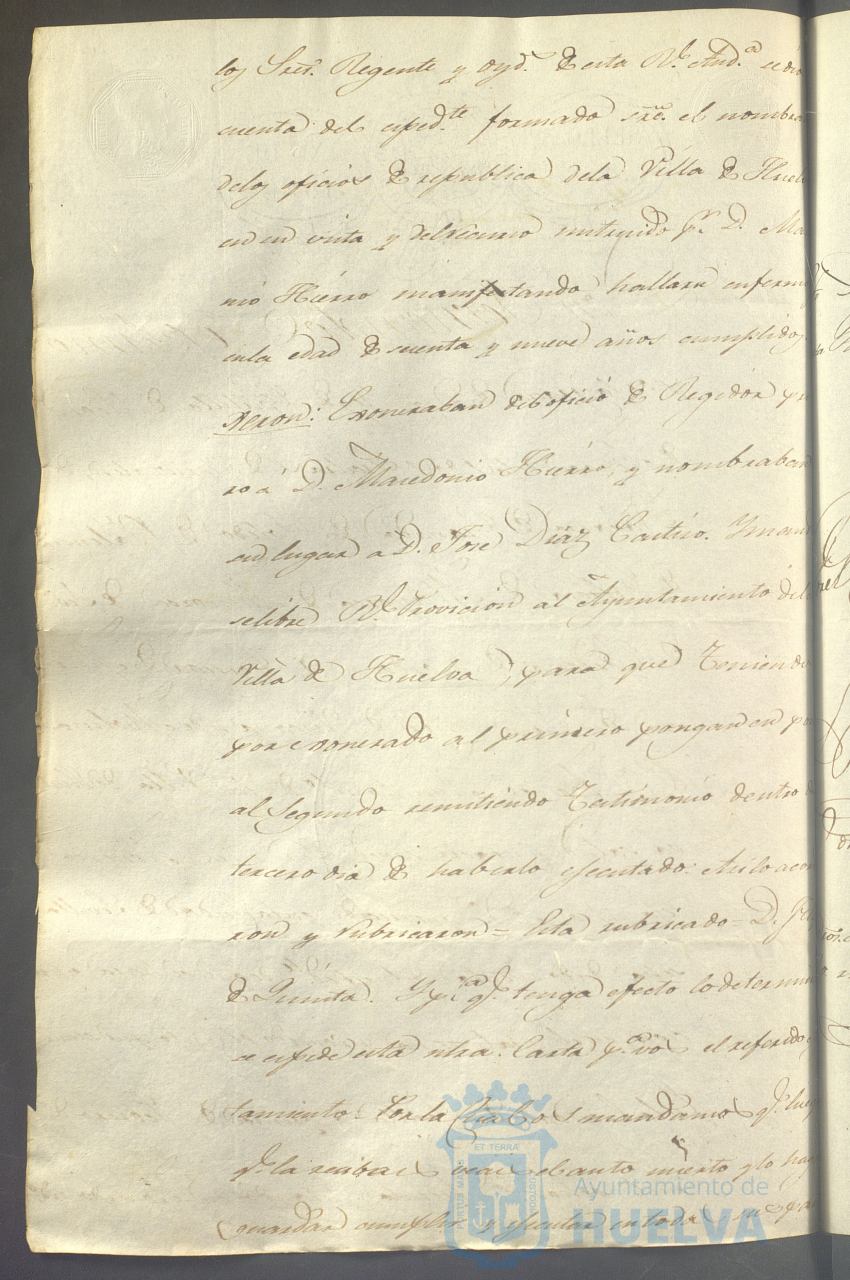 los Sres. Regente y oyds. de esta Rl. Aud.a se dio
cuenta del exped.te formado sre. el nombra
delos oficios de republica dela Villa de Huel
en su vista y del recurso instruido pr. D. Ma
nio Hierro manifestando hallarse enfermo
en la edad de y nueve años cumplidos
Dixeron: Exoneraban del oficio de Regidor pri
ro á D. Macedonio Hierro, y nombraban
en lugar a D. Jose Diaz Castiro. Y man
se libre Rl. Provicion al Ayuntamiento de la
Villa de Huelva, para que teniendo
por exonerado al primero pongan en po
al Segundo remitiendo Testimonio dentro de
tercero dia de haberlo ejecutado: Asi lo acor
ron y rubricaron = Esta rubricado = D.
de Quinta. Y p.a q.e tenga efecto lo determin
se expide esta ntra. Carta p.a vos el referido
tamiento: Por la cual os mandamos q.e lueg
q.e la recibais veais el auto inserto y lo hag
guardar cumplir y ejecutar en todo
ET TERRAE
Ayuntamiento de
HUELVA